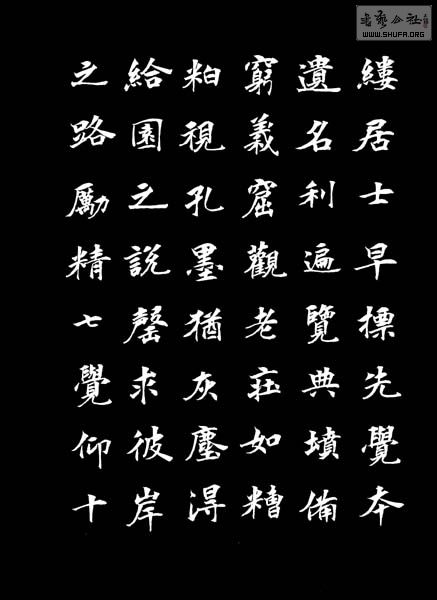 縷居士早摽先覺本
遺名利遍覽典墳備
窮義窟觀老莊如糟
粕視孔墨猶灰塵淂
給園之說罄求彼岸
之路勵精七覺仰十
WWW.SHUFA.ORG